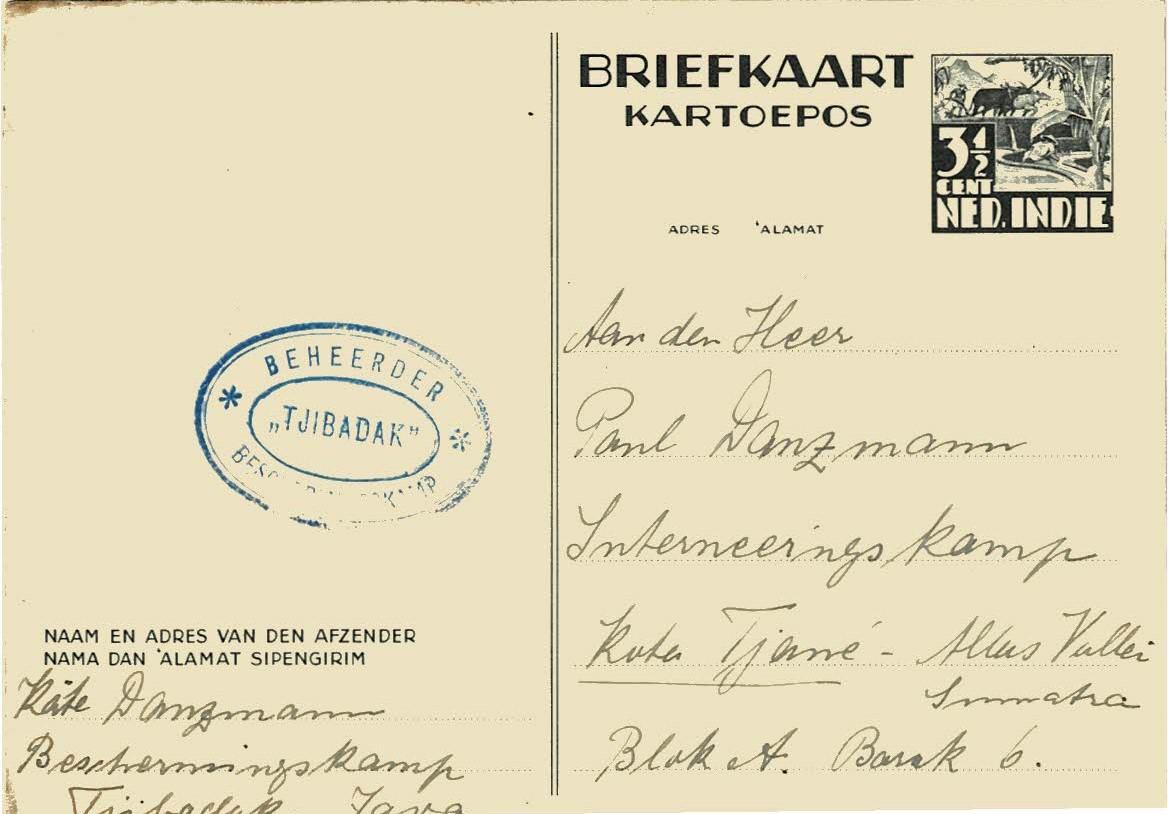 BRIEFKAART
KARTOEPOS
3 1/2
CENT
NED. INDIE
ADRES ʻALAMAT
Aan den Heer
Paul Danzmann
Interneeringskamp
Kota Tjané - Allas Vallei
Sumatra
Blok A. Barak 6.
BEHEERDER
„TJIBADAK"
NAAM EN ADRES VAN DEN AFZENDER
NAMA DAN ʻALAMAT SIPENGIRIM
Käte Danzmann
Beschermingskamp
Tjibadak Java